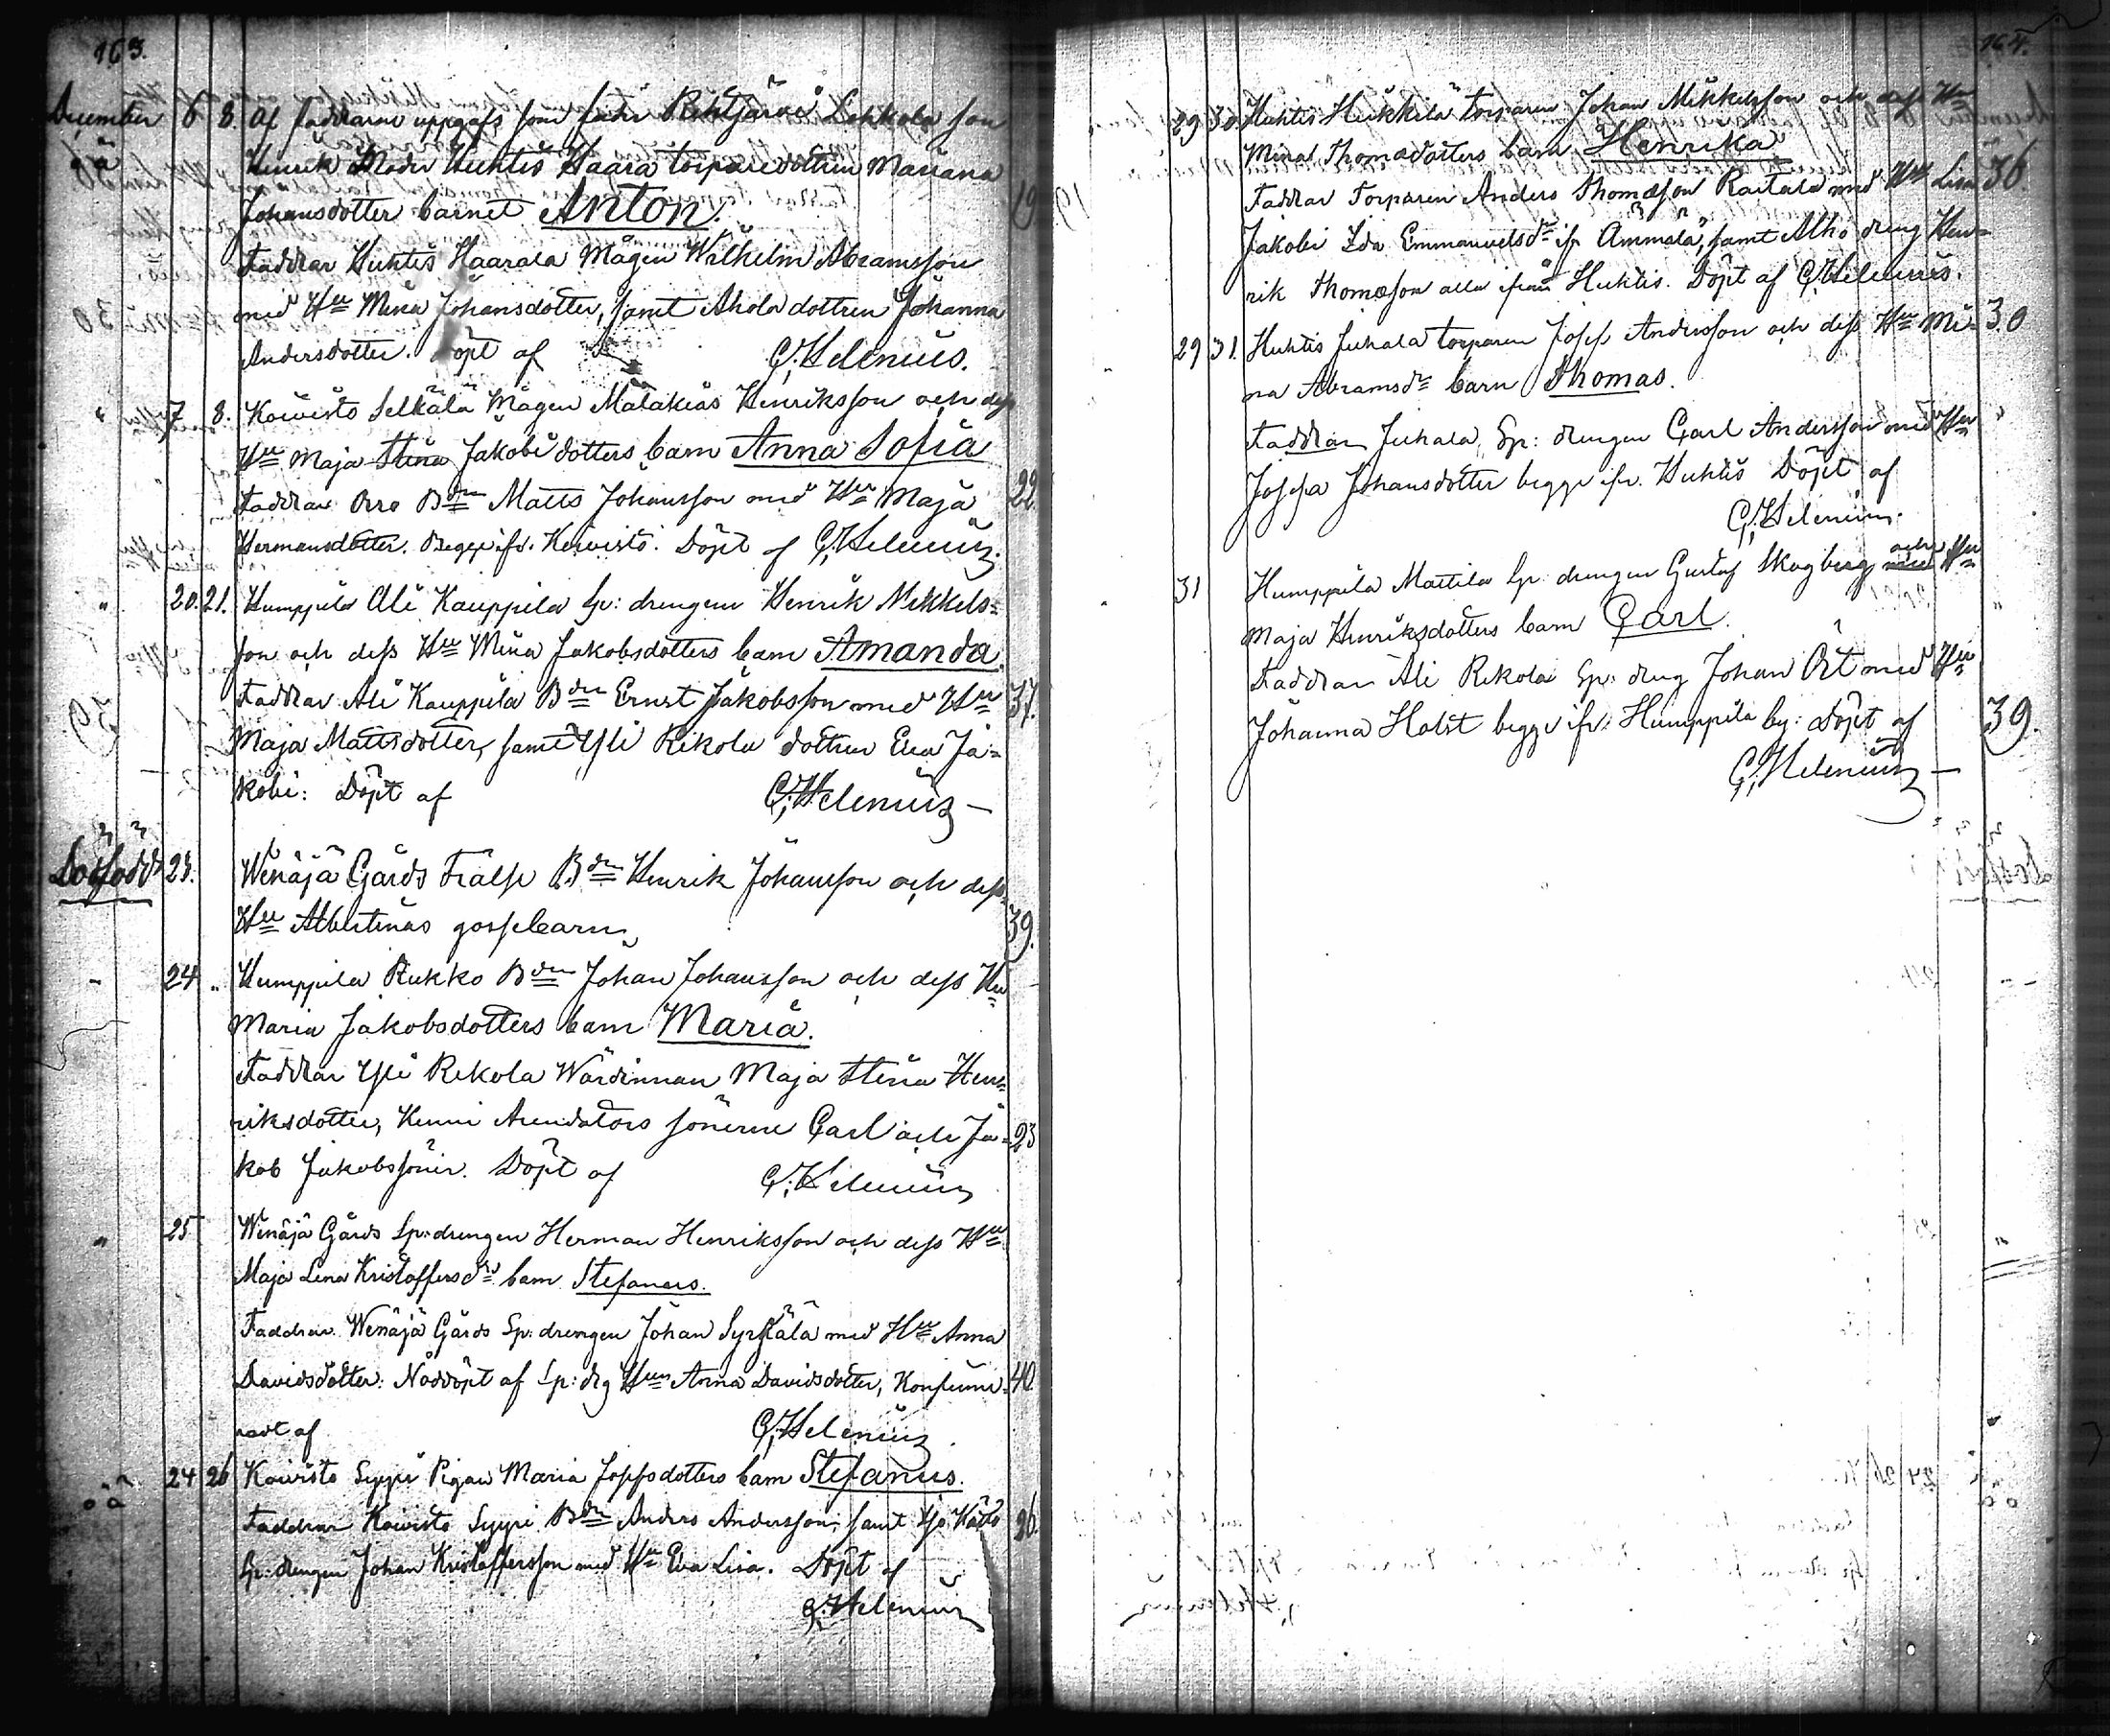 163.
December 6 8. Af faddrarne uppgafs som fader Rehtjärvi Lehkola son
oä Henrik Moder Huhtis Haara torparedottren Mariana
Johansdotter barnet Anton. 19
Faddrar Huhtis Haarala Mågen Wilhelm Abramsson
med Hu Mina Johansdotter, samt Ahola dottren Johanna
Andersdotter. Döpt af G. Helenius.
" 7 8. Koivisto Selkälä Mågen Malakias Henriksson och dess
Hu Maja Stina Jakobi dotters barn Anna Sofia
Faddrar Orro Bdn Matts Johansson med Hu Maja 22
Hermansdotter. Begge ifr. Koivisto. Döpt af G. Helenius.
" 20. 21. Humppila Ali Kauppila Sp: drengen Henrik Mikkels=
son och dess Hu Mina Jakobsdotters barn Amanda.
Faddrar Ali Kauppila Bdn Ernst Jakobsson med Hu 37.
Maja Mattsdotter, samt Yli Rekola dottren Eva Ja=
kobi: Döpt af G. Helenius
Dödfödd 23. Wenäjä Gårds Frälse Bdn Henrik Johansson och dess
Hu Albertinas gossebarn 39.
" 24 " Humppila Rukko Bdn Johan Johansson och dess Hu
Maria Jakobsdotters barn Maria.
Faddrar Yli Rekola Wärdinnan Maja Stina Hen=
riksdotter, Arendators sönerne Carl och Ja= 23
kob Jakobssöner. Döpt af G. Helenius
" 25 Wenäjä Gårds Sp: drengen Herman Henriksson och dess Hu
Maja Lena Kristoffersdr barn Stefanus.
Faddrar Wenäjä Gårds Sp: drengen Johan Syrjälä med Hu Anna
Davidsdotter: Nöddöpt af Sp: drg Hun Anna Davidsdotter, Konfirme= 40
radt af G. Helenius
oä 24 26 Koivisto Seppi Pigan Maria Josefsdotters barn Stefanus.
Faddrar Koivisto Bdn Anders Andersson, samt 26.
Sp: drengen Johan Kristoffersson med Hu Eva Lisa. Döpt af
G. Helenius
164.
29 30. Huhtis Heikkilä torparen Johan Mikkelsson och dess Hu
Mina Thomasdotters barn Henrika 36
Faddrar Torparen Anders Thomasson Raitala med Hu Lisa
Jakobi Ida Emmanuelsdr ifr Ämmälä, samt Alho dreng Hen=
rik Thomasson alla ifrån Huhtis. Döpt af G. Helenius.
29 31. Huhtis Juhala torparen Josef Andersson och dess Hu Mi= 30
na Abramsdr barn Thomas.
Faddrar Juhala Sp: drengen Carl Andersson med Hu
Josefa Johansdotter begge ifr. Huhtis Döpt af
G. Helenius.
31 Humppila Mattila Sp: drengen Gustaf Skogberg och Hu
Maja Henriksdotters barn Carl.
Faddrar Ali Rekola Sp: dreng Johan Öst med Hu
Johanna Holst begge ifr: Humppila by: Döpt af 39.
G. Helenius